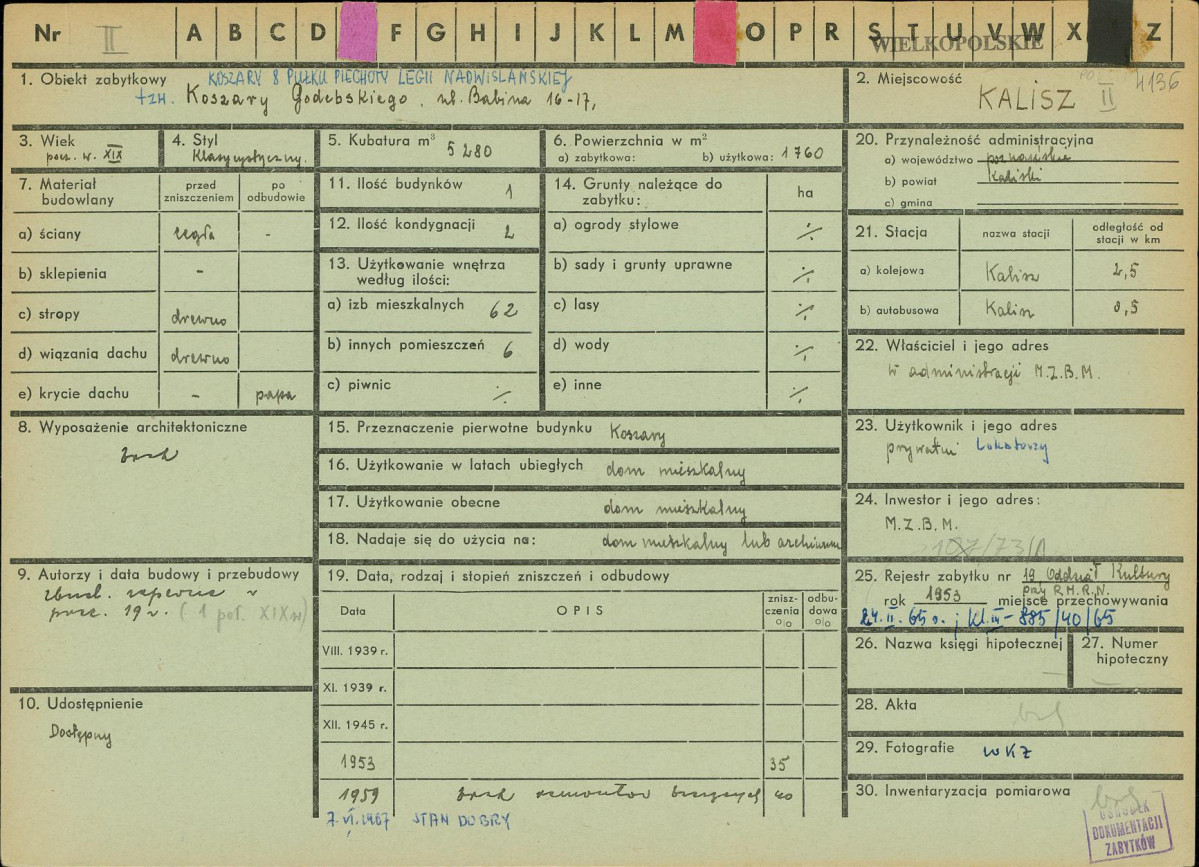 Nr II A B C D F G H I J K L M O P R S T U V W X Z
WIELKOPOLSKIE
1. Obiekt zabytkowy KOSZARY 8 PUŁKU PIECHOTY LEGII NADWIŚLAŃSKIEJ
tzw. Koszary Godebskiego, ul. Babina 16-17,
2. Miejscowość
KALISZ II 4136
3. Wiek
pocz. w. XIX
4. Styl
Klasycystyczny.
5. Kubatura m³ 5 280
6. Powierzchnia w m²
a) zabytkowa: b) użytkowa: 1760
20. Przynależność administracyjna
a) województwo poznańskie
b) powiat Kaliski
c) gmina
7. Materiał budowlany
przed zniszczeniem
po odbudowie
a) ściany cegła -
b) sklepienia -
c) stropy drewno
d) wiązania dachu drewno
e) krycie dachu - papa
11. Ilość budynków 1
12. Ilość kondygnacji 2
13. Użytkowanie wnętrza według ilości:
a) izb mieszkalnych 62
b) innych pomieszczeń 6
c) piwnic ·/·
14. Grunty należące do zabytku:
ha
a) ogrody stylowe ·/·
b) sady i grunty uprawne ·/·
c) lasy ·/·
d) wody ·/·
e) inne ·/·
21. Stacja
nazwa stacji
odległość od stacji w km
a) kolejowa Kalisz 2,5
b) autobusowa Kalisz 0,5
22. Właściciel i jego adres
w administracji M.Z.B.M.
8. Wyposażenie architektoniczne
brak
15. Przeznaczenie pierwotne budynku Koszary
16. Użytkowanie w latach ubiegłych dom mieszkalny
17. Użytkowanie obecne dom mieszkalny
18. Nadaje się do użycia na: dom mieszkalny lub archiwum
23. Użytkownik i jego adres
prywatni Lokatorzy
24. Inwestor i jego adres:
M.Z.B.M.
9. Autorzy i data budowy i przebudowy
zbud. zapewne w
pocz. 19 w. (1 poł. XIX w)
10. Udostępnienie
Dostępny
19. Data, rodzaj i stopień zniszczeń i odbudowy
Data
OPIS
zniszczenia %
odbudowa %
VIII. 1939 r.
XI. 1939 r.
XII. 1945 r.
1953 35
1959 brak remontów bieżących 40
7.VI.1967 STAN DOBRY
25. Rejestr zabytku nr 19 Oddział Kultury
przy P.M.R.N.
rok 1953 miejsce przechowywania
24.II.65 r. ; Kl.III-885/40/65
26. Nazwa księgi hipotecznej
27. Numer hipoteczny
28. Akta
brak
29. Fotografie WKZ
30. Inwentaryzacja pomiarowa
brak
OŚRODEK
DOKUMENTACJI
ZABYTKÓW